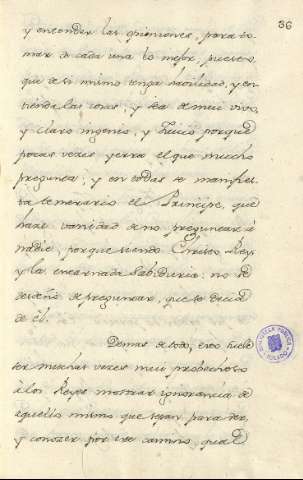 36
y entender las opiniones, para to-
mar de cada una lo mejor, puesto
que de si mismo tenga habilidad, y en-
tienda las cosas, y sea de mui vivo,
y claro ingenio, y Juicio porque
pocas veces yerra el que mucho
pregunta: y en todas se manifies-
ta temerario el Principe, que
hace vanidad de no preguntar à
nadie, porque siendo Christo Rey,
y la encarnada Sabiduria: no se
desdeñó de preguntar, que se decia
de èl.
Demas de todo, esto suele
ser muchas veces mui probechoso
à los Reyes mostrar ignorancia de
aquello mismo que sepan para ver,
y conocer por este camino, qual
BIBLIOTECA PUBLICA
TOLEDO